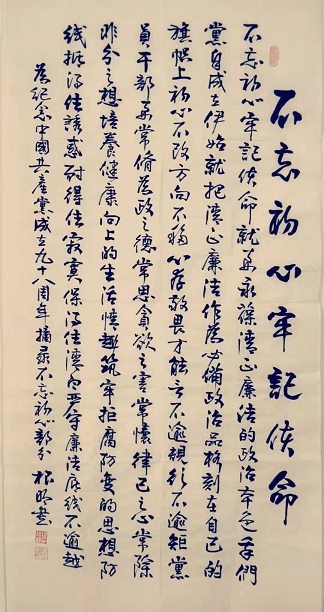 不忘初心牢记使命
不忘初心牢記使命就要永葆清正廉洁的政治本色我們
黨自成立伊始就把清正廉洁作為必備政治品格刻在自己的
旗帜上初心不改方向不移心存敬畏才能言不逾規行不逾矩黨
員干部要常脩為政之德常思貪欲之害常懷律己之心常除
非分之想培養健康向上的生活情趣筑牢拒腐防变的思想防
线抵得住誘惑耐得住寂寞保得住清白严守廉洁底线不逾越
為紀念中國共産黨成立九十八周年摘录不忘初心部分
根明书